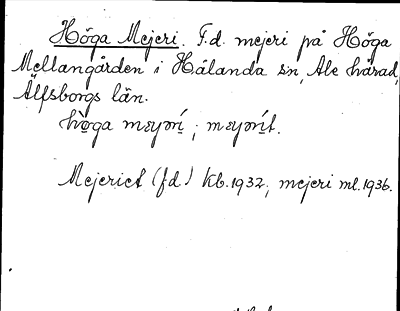 Höga Mejeri. F.d. mejeri på Höga
Mellangården i Hålanda sn, Ale härad,
Älfsborgs län.
hò̤ga mɛyərí ; mɛyərít.
Mejeriet (fd) Kb. 1932, mejeri ml. 1936.